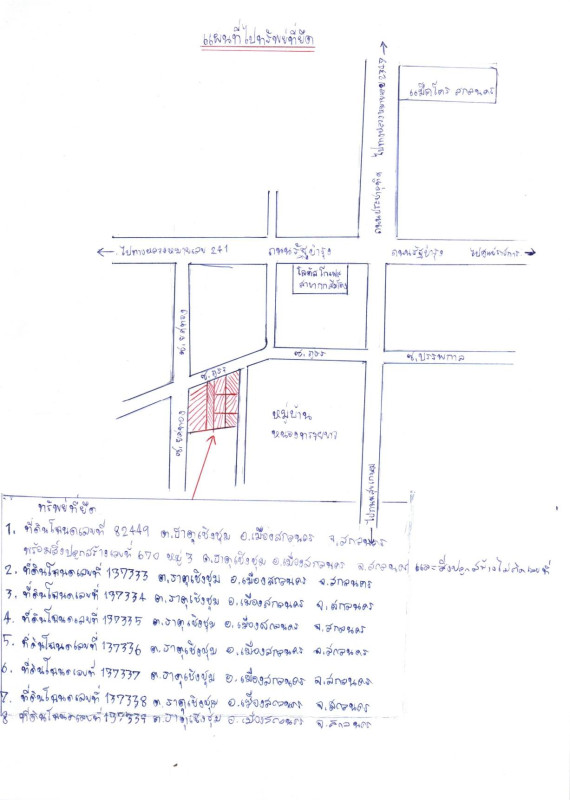 แผนที่ไปทรัพย์ที่ยึด
แม็คโคร สกลนคร
ถนนประชาอุทิศ
ไปทางหลวงหมายเลข
ไปทางหลวงหมายเลข 241
ถนนรัฐบำรุง
ถนนรัฐบำรุง
ไปศูนย์ราชการ
โลตัสโกเฟรช
สาขา
ซ.ยศทอง
ซ.ภูธร
ซ.บรรพกาล
ซ.ภูธร
ซ.ยศทอง
หมู่บ้าน
หนองทรายขาว
ทรัพย์ที่ยึด
1. ที่ดินโฉนดเลขที่ 82449 ต.ธาตุเชิงชุม อ.เมืองสกลนคร จ.สกลนคร
พร้อมสิ่งปลูกสร้างเลขที่ 670 หมู่ 3 ต.ธาตุเชิงชุม อ.เมืองสกลนคร จ.สกลนคร และสิ่งปลูกสร้างไม่มีเลขที่
2. ที่ดินโฉนดเลขที่ 137333 ต.ธาตุเชิงชุม อ.เมืองสกลนคร จ.สกลนคร
3. ที่ดินโฉนดเลขที่ 137334 ต.ธาตุเชิงชุม อ.เมืองสกลนคร จ.สกลนคร
4. ที่ดินโฉนดเลขที่ 137335 ต.ธาตุเชิงชุม อ.เมืองสกลนคร จ.สกลนคร
5. ที่ดินโฉนดเลขที่ 137336 ต.ธาตุเชิงชุม อ.เมืองสกลนคร จ.สกลนคร
6. ที่ดินโฉนดเลขที่ 137337 ต.ธาตุเชิงชุม อ.เมืองสกลนคร จ.สกลนคร
7. ที่ดินโฉนดเลขที่ 137338 ต.ธาตุเชิงชุม อ.เมืองสกลนคร จ.สกลนคร
8 ที่ดินโฉนดเลขที่ 137339 ต.ธาตุเชิงชุม อ.เมืองสกลนคร จ.สกลนคร